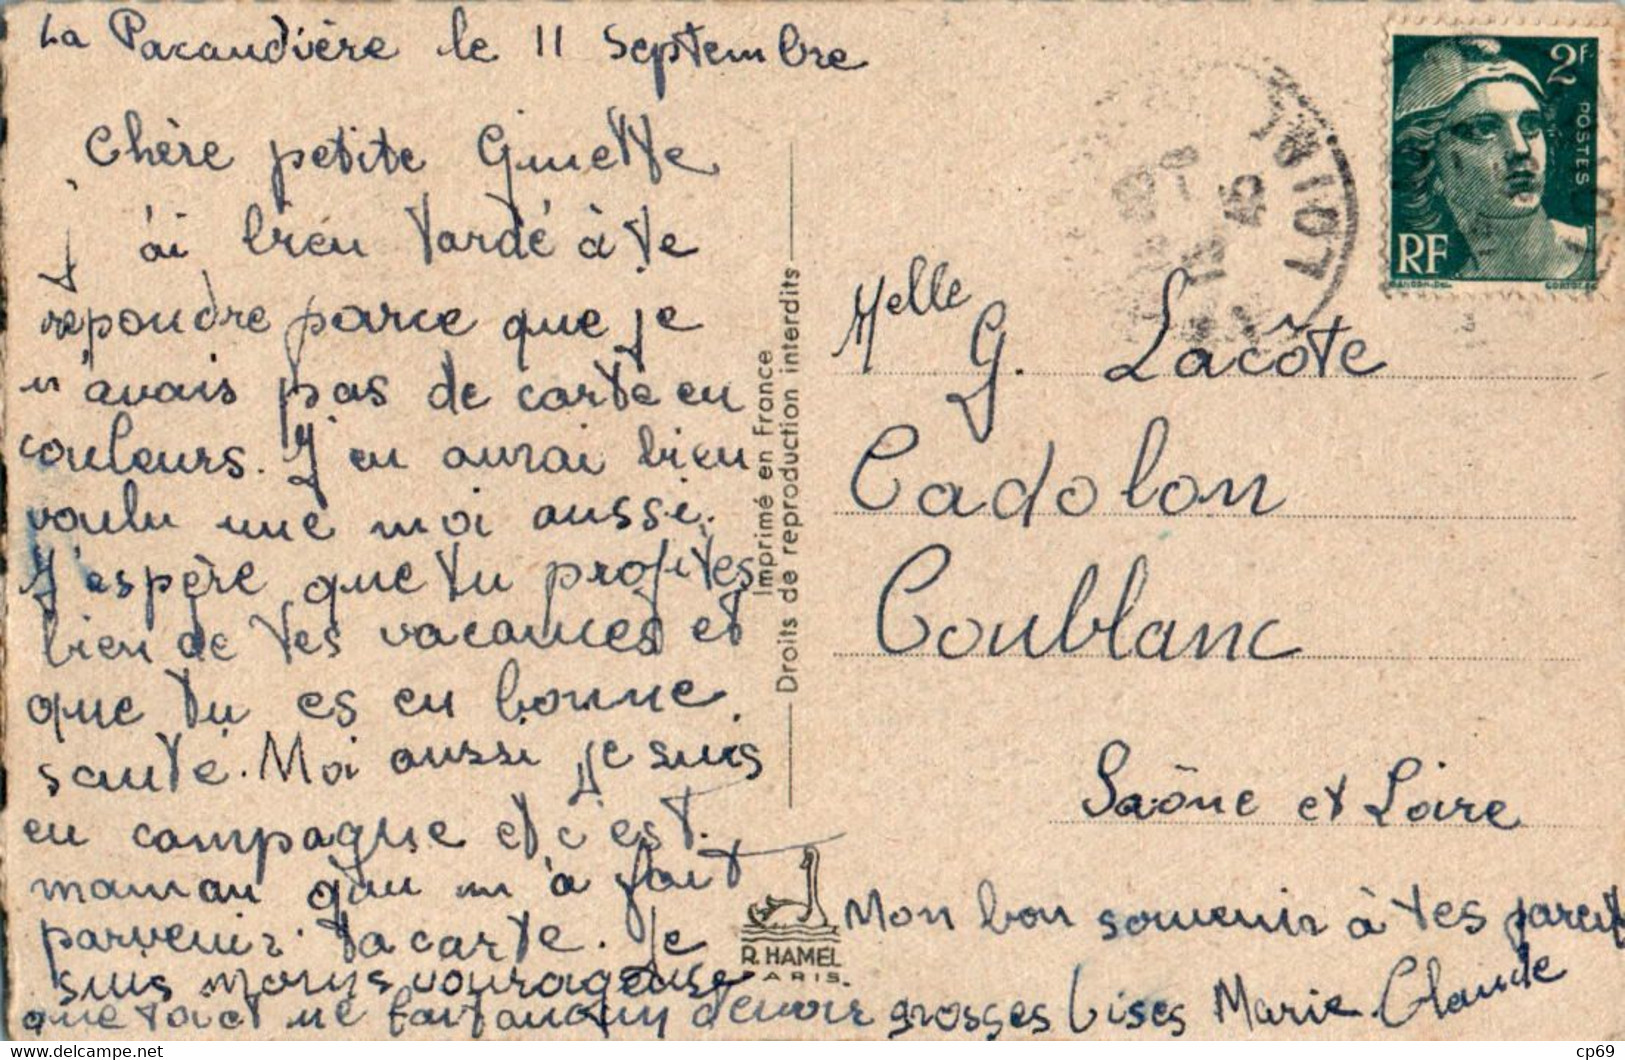 La Pacaudière le 11 Septembre
Chère petite Ginette
J'ai bien tardé à te
répondre parce que je
n'avais pas de carte en
couleurs. J'en aurai bien
voulu une moi aussi.
J'espère que tu profites
bien de tes vacances et
que tu es en bonne
santé. Moi aussi je suis
en campagne et c'est
maman qui m'a fait
parvenir ta carte. Je
suis moins courageuse
que toi et ne fait aucun devoir grosses bises Marie Claude
Mon bon souvenir à tes parents
Imprimé en France
Droits de reproduction interdits
R. HAMEL
PARIS.
Melle G. Lacôte
Cadolon
Coublanc
Saône et Loire
2F
POSTES
RF
GANDON-DEL.
CORTOT-SC
LOIRE
45
cp69